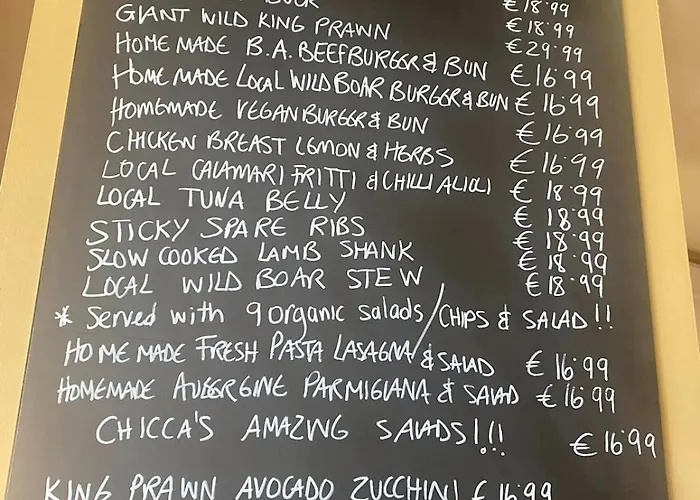 €18.99
€18.99
GIANT WILD KING PRAWN €29.99
HOME MADE B.A. BEEFBURGER & BUN €16.99
HOME MADE LOCAL WILD BOAR BURGER & BUN €16.99
HOMEMADE VEGAN BURGER & BUN €16.99
CHICKEN BREAST LEMON & HERBS €16.99
LOCAL CALAMARI FRITTI & CHILLI ALIOLI €18.99
LOCAL TUNA BELLY €18.99
STICKY SPARE RIBS €18.99
SLOW COOKED LAMB SHANK €18.99
LOCAL WILD BOAR STEW €18.99
* Served with 9 organic salads / CHIPS & SALAD !!
HOME MADE FRESH PASTA LASAGNA & SALAD €16.99
HOMEMADE AUBERGINE PARMIGIANA & SALAD €16.99
CHICCA'S AMAZING SALADS!!! €16.99
KING PRAWN AVOCADO ZUCCHINI €16.99